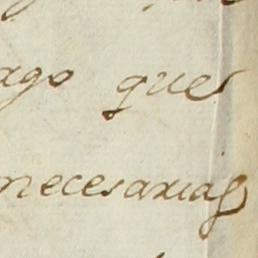 ago que
necesarias